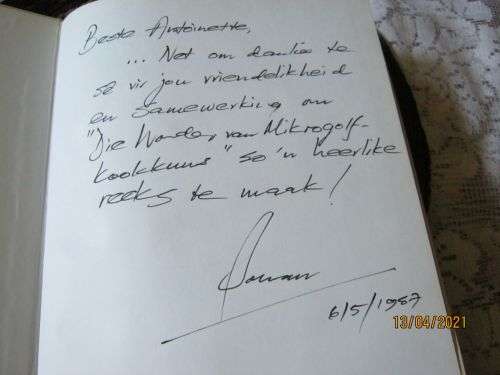 Beste Antoinette,
... Net om dankie te
sê vir jou vriendelikheid
en samewerking om
"Die Wonder van Mikrogolf-
kookkuns" so 'n heerlike
reeks te maak!
6/5/1987
13/04/2021